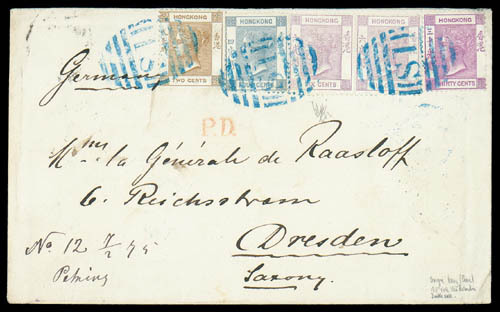 HONGKONG HONGKONG HONGKONG HONGKONG HONGKONG
TWO CENTS CENTS CENTS CENTS THIRTY CENTS
S1
Germany
P.D.
Mme la Générale de Raasloff
6. Reichsstrasse
Dresden
Saxony.
No. 12 7/2 75
Peking